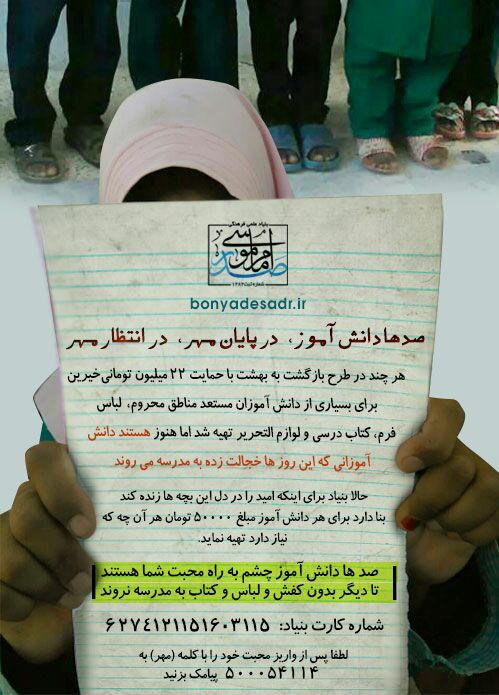 بنیاد علمی فرهنگی
امام موسی صدر
bonyadesadr.ir
صدها دانش آموز، در پایان مهر، در انتظار مهر
هر چند در طرح بازگشت به بهشت با حمایت ۲۲ میلیون تومانی خیرین
برای بسیاری از دانش آموزان مستعد مناطق محروم، لباس
فرم، کتاب درسی و لوازم التحریر تهیه شد اما هنوز هستند دانش
آموزانی که این روز ها خجالت زده به مدرسه می روند
حالا بنیاد برای اینکه امید را در دل این بچه ها زنده کند
بنا دارد برای هر دانش آموز مبلغ ۵۰۰۰۰ تومان هر آن چه که
نیاز دارد تهیه نماید.
صد ها دانش آموز چشم به راه محبت شما هستند
تا دیگر بدون کفش و لباس و کتاب به مدرسه نروند
شماره کارت بنیاد: ۶۲۷۴۱۲۱۱۵۱۶۰۳۱۱۵
لطفا پس از واریز محبت خود را با کلمه (مهر) به
۵۰۰۰۵۴۱۱۴ پیامک بزنید